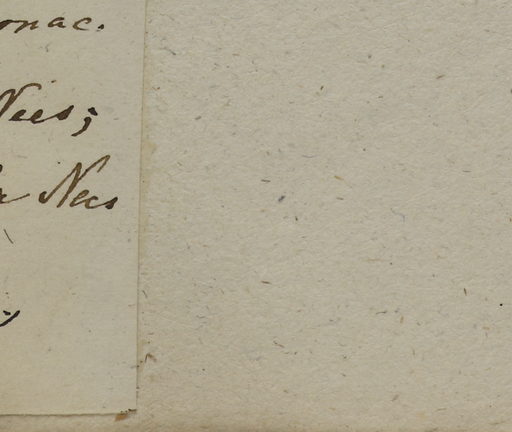 onac.
Nees;
Nees